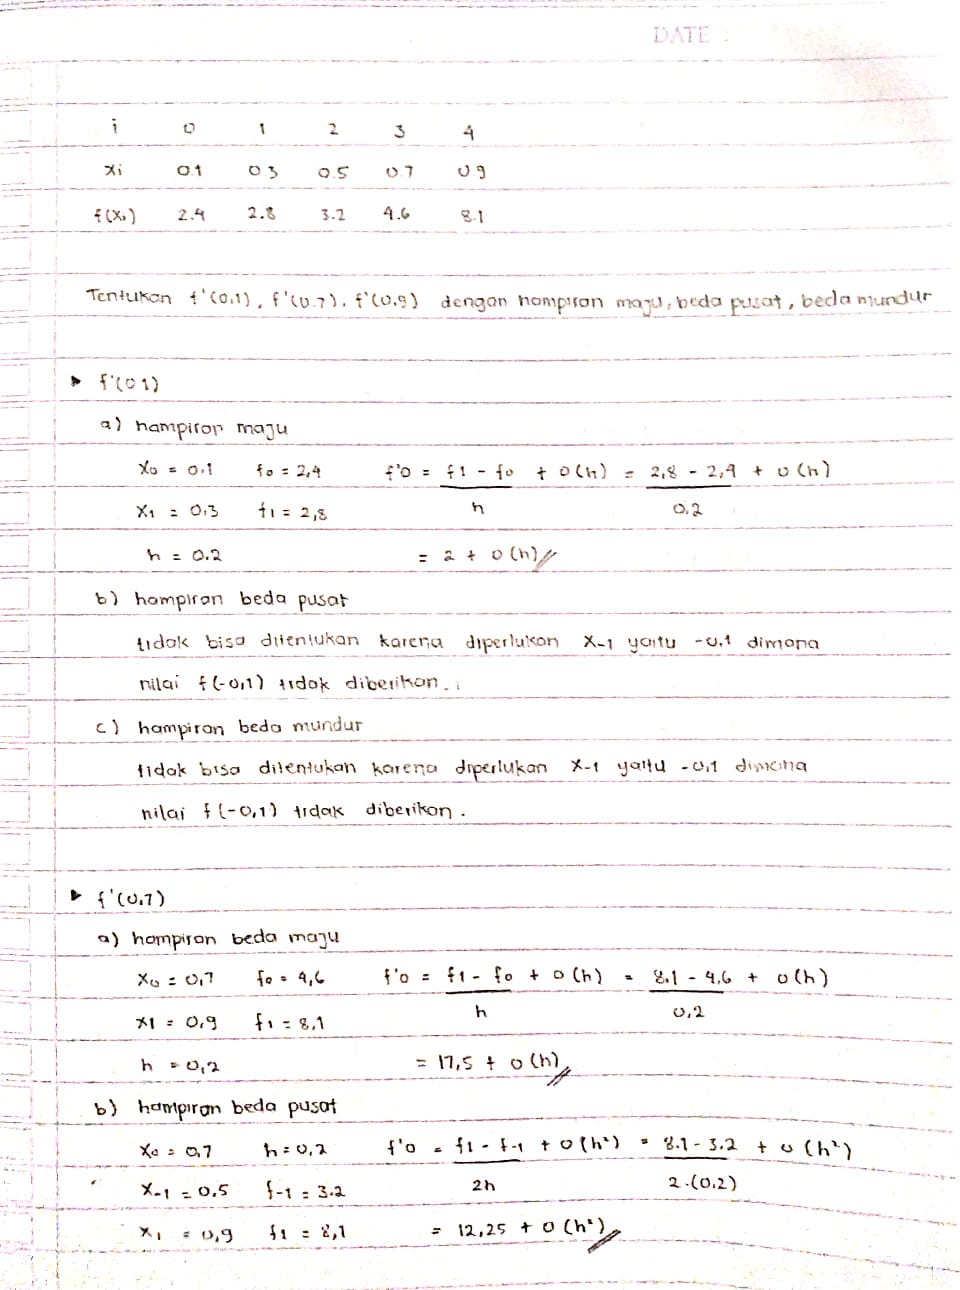 DATE :
i 0 1 2 3 4
xi 0.1 0.3 0.5 0.7 0.9
f(xi) 2.4 2.8 3.2 4.6 8.1
Tentukan f'(0.1), f'(0.7), f'(0.9) dengan hampiran maju, beda pusat, beda mundur
▸ f'(0.1)
a) hampiran maju
x0 = 0.1 f0 = 2,4 f'0 = f1 - f0 + O(h) = 2,8 - 2,4 + O(h)
x1 = 0.3 f1 = 2,8 h 0.2
h = 0.2 = 2 + O(h)
b) hampiran beda pusat
tidak bisa ditentukan karena diperlukan x-1 yaitu -0.1 dimana
nilai f(-0,1) tidak diberikan.
c) hampiran beda mundur
tidak bisa ditentukan karena diperlukan x-1 yaitu -0,1 dimana
nilai f(-0,1) tidak diberikan.
▸ f'(0.7)
a) hampiran beda maju
x0 = 0,7 f0 = 4,6 f'0 = f1 - f0 + O(h) = 8.1 - 4.6 + O(h)
x1 = 0,9 f1 = 8,1 h 0,2
h = 0,2 = 17,5 + O(h)
b) hampiran beda pusat
x0 = 0,7 h = 0,2 f'0 = f1 - f-1 + O(h²) = 8.1 - 3.2 + O(h²)
x-1 = 0.5 f-1 = 3.2 2h 2.(0.2)
x1 = 0,9 f1 = 8,1 = 12,25 + O(h²)